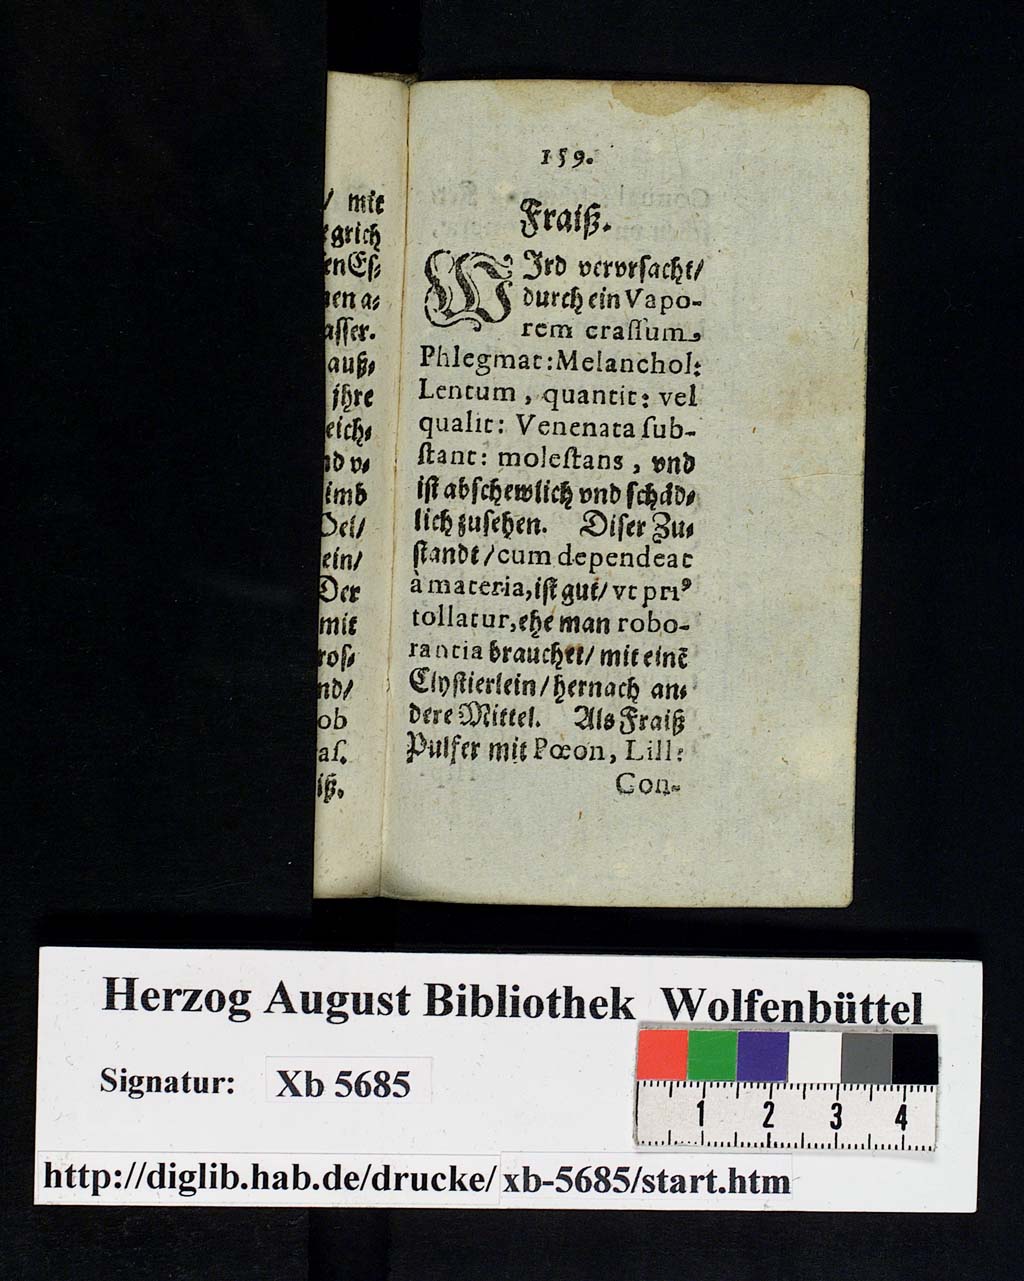 / mit
grich
en Eſ⸗
nen a⸗
aſſer.
auß⸗
jhre
eich⸗
nd v⸗
imb
Oel/
ein/
Der
mit
roſ⸗
nd/
ob
aſ.
iß.
159.
Fraiß.
WIrd vervrſacht/
durch ein Vapo-
rem craſſum,
Phlegmat: Melanchol:
Lentum, quantit: vel
qualit: Venenata ſub-
ſtant: moleſtans, vnd
iſt abſchewlich vnd ſchäd⸗
lich zuſehen. Diſer Zu⸗
ſtandt / cum dependeat
à materia, iſt gut / vt priꝰ
tollatur, ehe man robo-
rantia brauchet / mit einē
Clyſtierlein / hernach an⸗
dere Mittel. Als Fraiß
Pulfer mit Pœon, Lill:
Con-
Herzog August Bibliothek Wolfenbüttel
Signatur: Xb 5685
1 2 3 4
http://diglib.hab.de/drucke/ xb-5685/start.htm